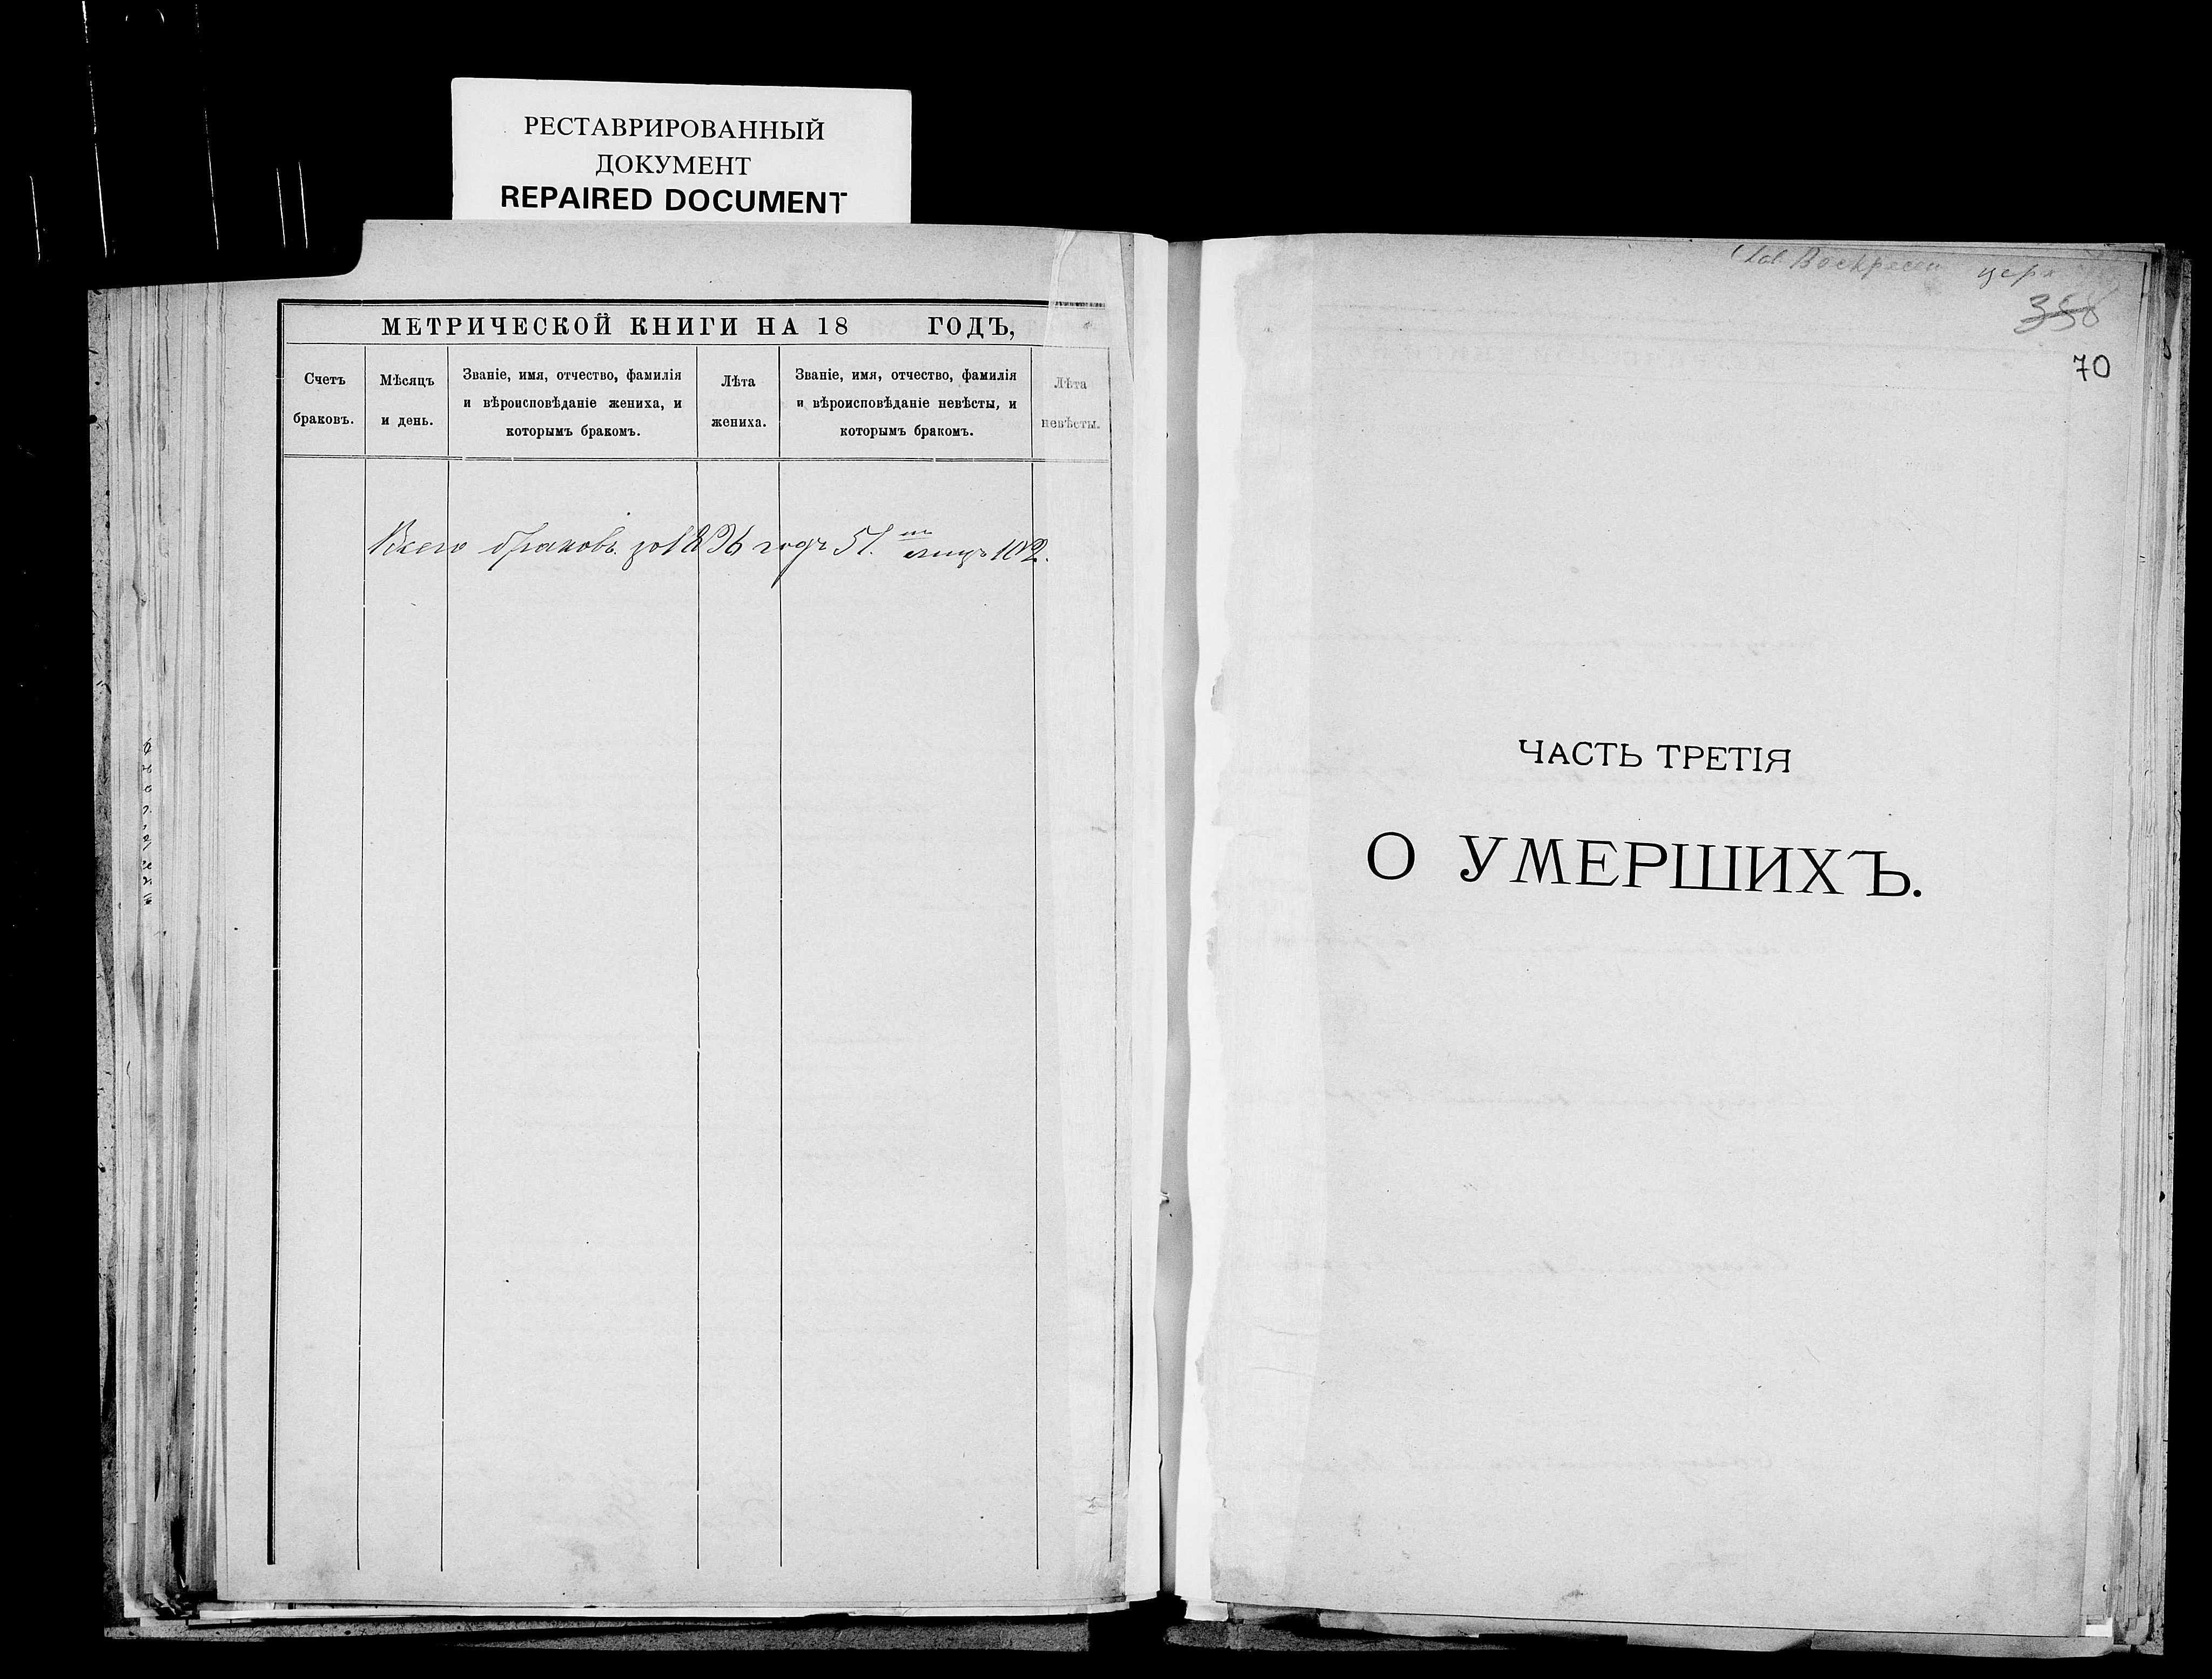 РЕСТАВРИРОВАННЫЙ
ДОКУМЕНТ
REPAIRED DOCUMENT
МЕТРИЧЕСКОЙ КНИГИ НА 18 ГОДЪ,
Счетъ браковъ.
Мѣсяцъ и день.
Званіе, имя, отчество, фамилія
и вѣроисповѣданіе жениха, и
которымъ бракомъ.
Лѣта жениха.
Званіе, имя, отчество, фамилія
и вѣроисповѣданіе невѣсты, и
которымъ бракомъ.
Лѣта невѣсты.
Всего браковъ за 1896 годъ 51. лицъ 102.
Воскресен церк
358
70
ЧАСТЬ ТРЕТІЯ
О УМЕРШИХЪ.